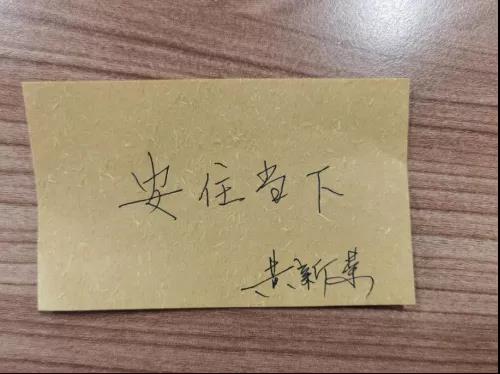 安住当下
黄新荣